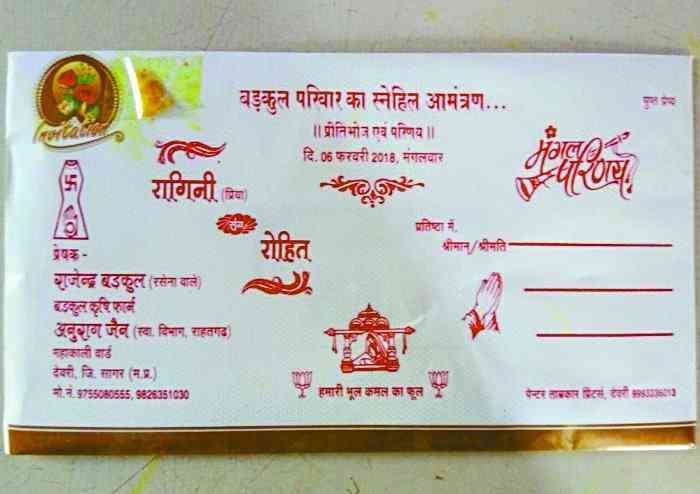 Invitation
बड़कुल परिवार का स्नेहिल आमंत्रण...
गुप्त प्रेष्य
।। प्रीतिभोज एवं परिणय ।।
दि. 06 फरवरी 2018, मंगलवार
मंगल परिणय
रागिनी (प्रिया)
संग
रोहित
प्रतिष्ठा में,
श्रीमान्/श्रीमति
प्रेषक -
राजेन्द्र बड़कुल (रसेना वाले)
बड़कुल कृषि फार्म
अनुराग जैन (स्वा. विभाग, राहतगढ़)
महाकाली वार्ड
देवरी, जि. सागर (म.प्र.)
मो.नं. 9755080555, 9826351030
हमारी भूल कमल का फूल
पेन्टर ताम्रकार प्रिंटर्स, देवरी 9993336013